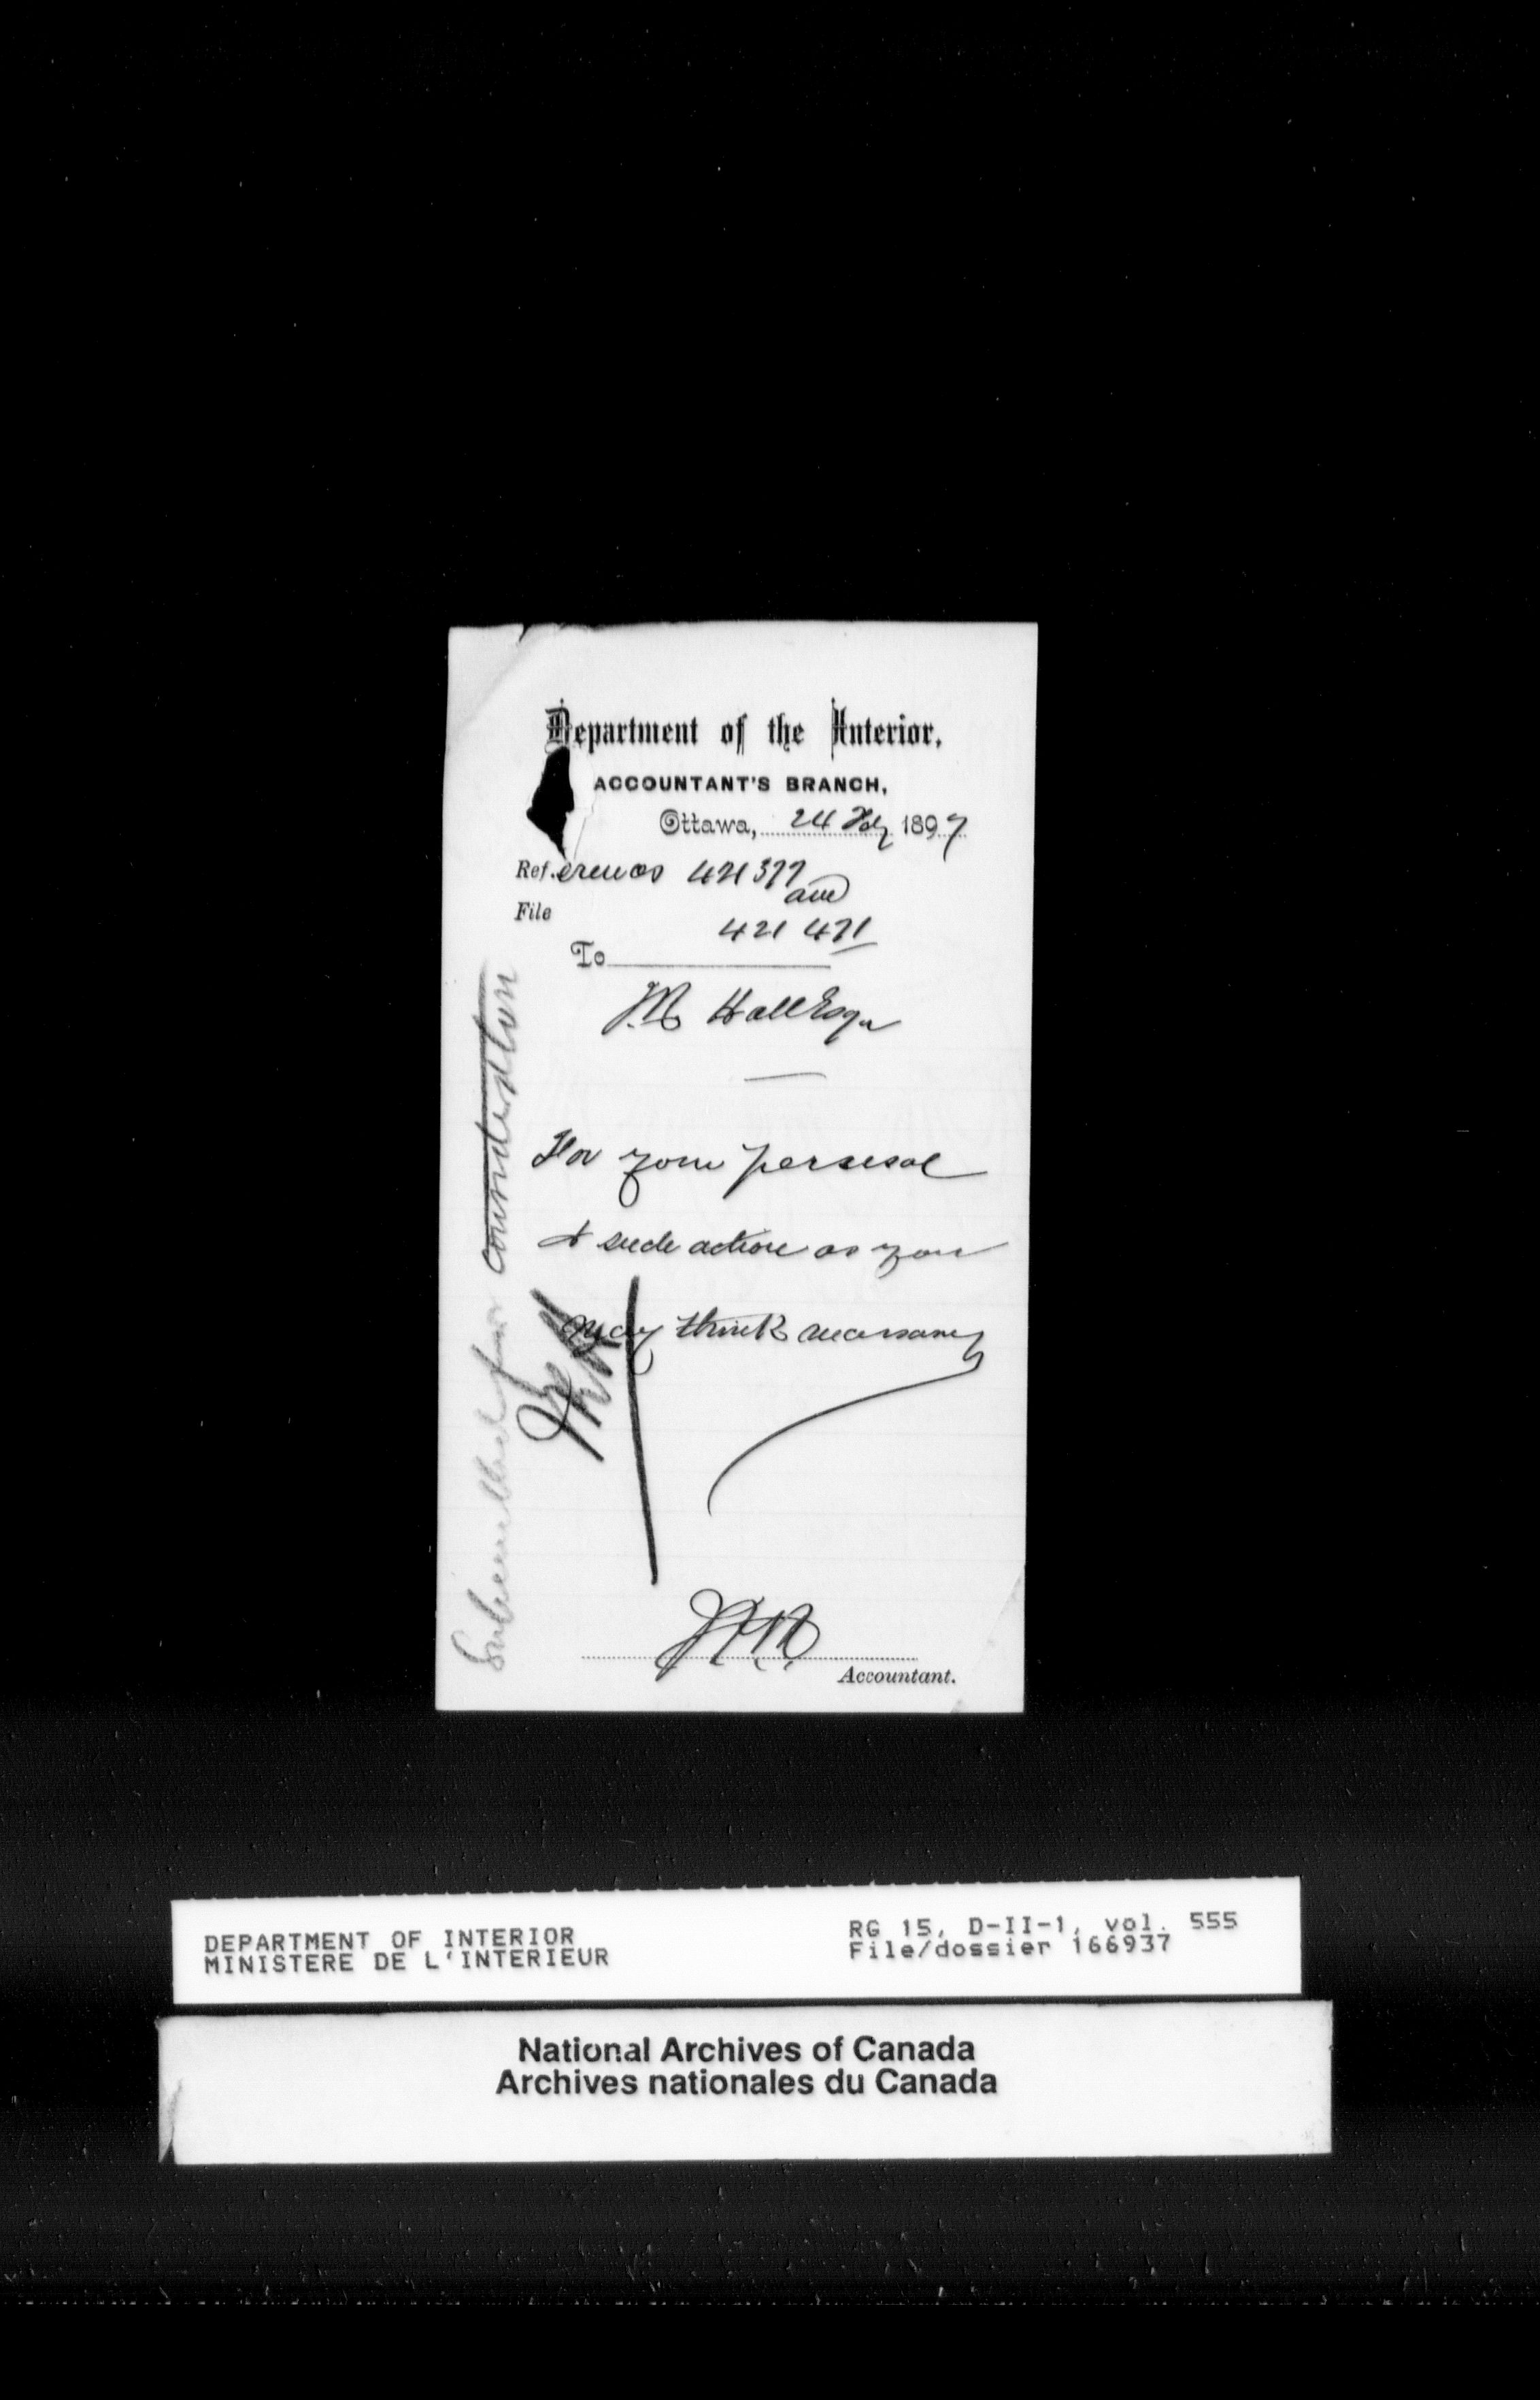 Department of the Interior,
ACCOUNTANT'S BRANCH,
Ottawa, 24 Feby 1897
Ref.erences 421377
and
File
421 471
To
J.M. Hall Esqr
For your perusal
& such action as you
may think necessary
Accountant.
Submitted for consideration
DEPARTMENT OF INTERIOR
MINISTERE DE L'INTERIEUR
RG 15, D-II-1, vol. 555
File/dossier 166937
National Archives of Canada
Archives nationales du Canada